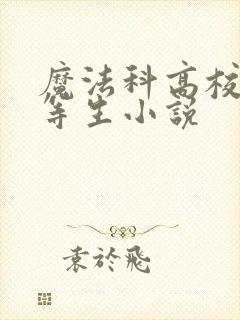 魔法科高校
等生小説
袁於飛